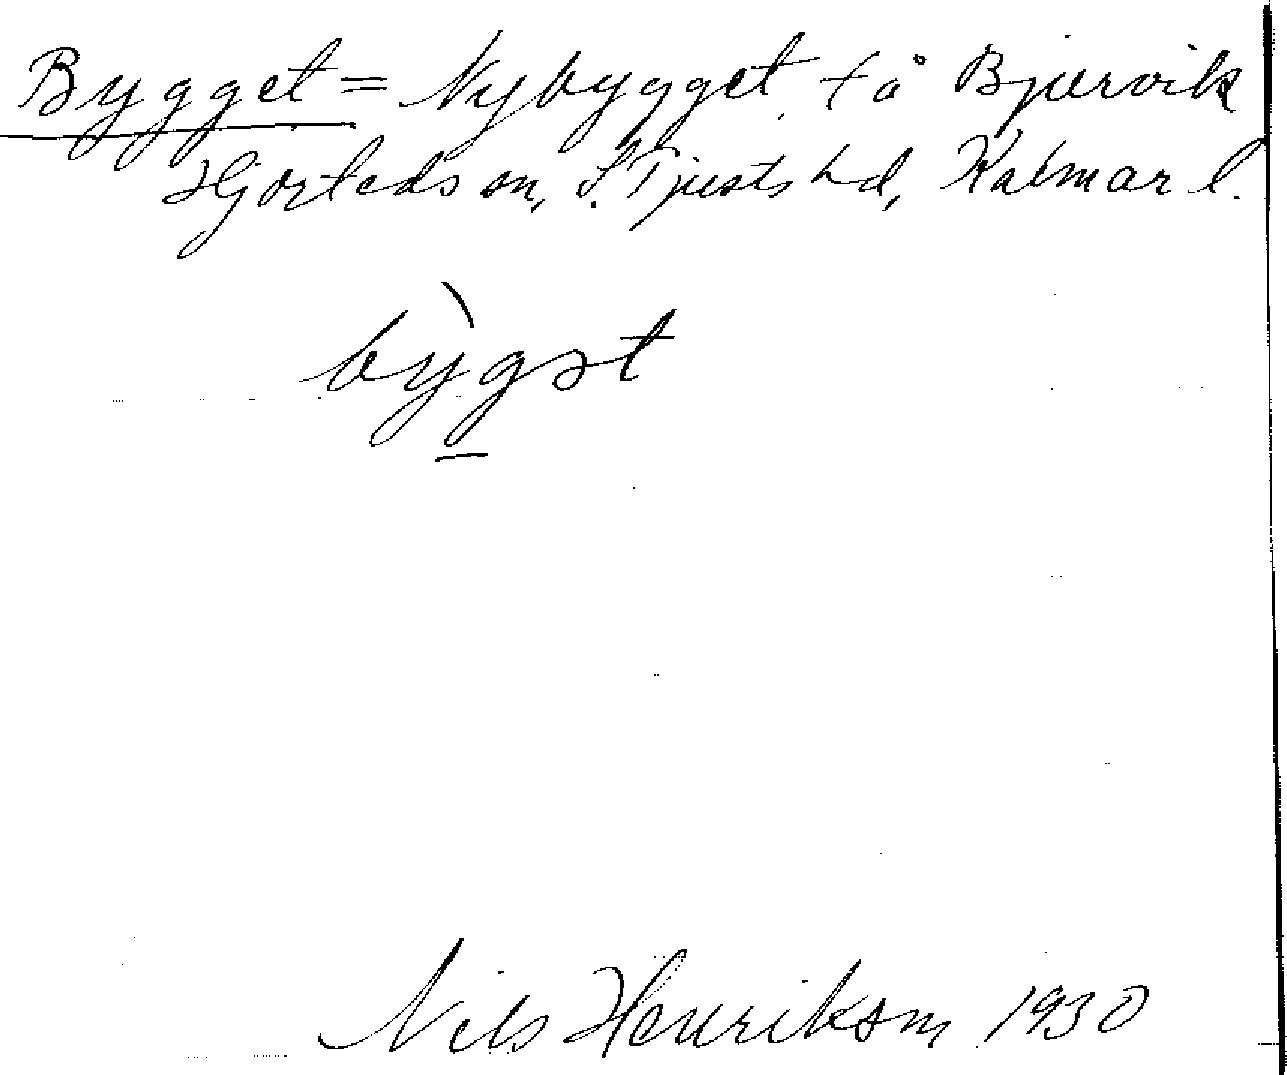 Bygget = Nybygget, tå Bjursvik
Hjorteds sn, S. Tjusts hd, Kalmar l.
bỳgət
Nils Henrikson 1930